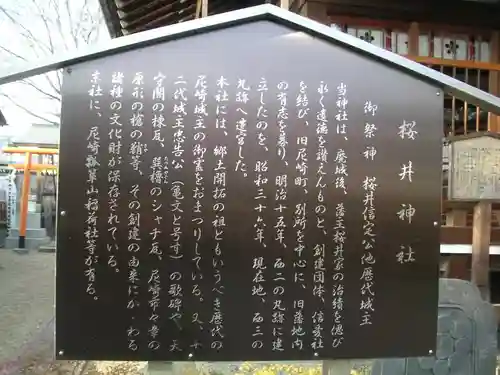 桜井神社
御祭神　桜井信定公他歴代城主
当神社は、廃城後、藩主桜井家の治績を偲び
永く遺徳を讃えんものと、創建団体、信愛社
を結び、旧尼崎町、別所を中心に、旧藩地内
の有志を募り、明治十五年、西二の丸跡に建
立したのを、昭和三十六年、現在地、西三の
丸跡へ遷宮した。
本社には、郷土開拓の祖ともいうべき歴代の
尼崎城主の御霊をおまつりしている。又、十
二代城主忠告公（亀文と号す）の歌碑や、天
守閣の棟瓦、巽櫓のシャチ瓦、尼崎市々章の
原形の槍の鞘等、その創建の由来にかゝわる
諸種の文化財が保存されている。
末社に、尼崎瓢箪山稲荷社等が有る。